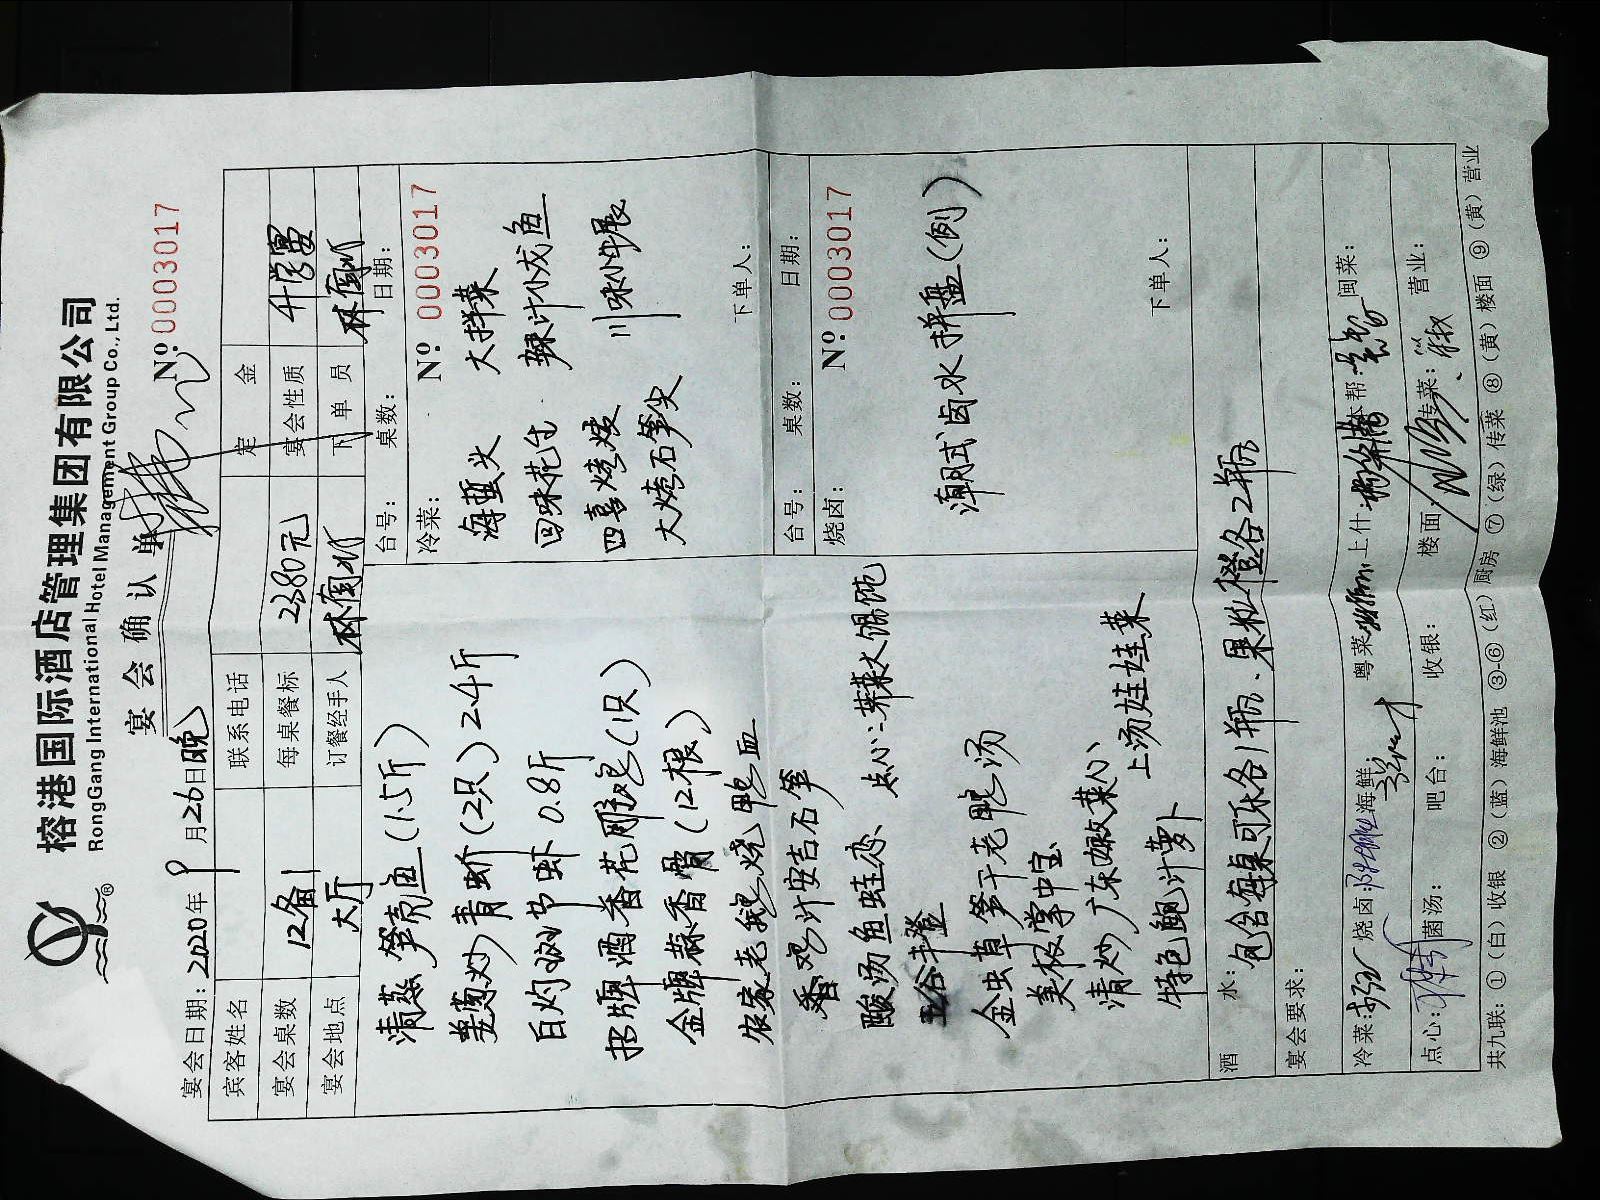 榕港国际酒店管理集团有限公司
RongGang International Hotel Management Group Co., Ltd.
宴会确认单
宴会日期：2020年9月26日晚 Nº 0003017
宾客姓名 联系电话 定金
宴会桌数 12备1 每桌餐标 2380元 宴会性质 升学宴
宴会地点 大厅 订餐经手人 下单员
清蒸笋壳鱼（1.5斤）
姜葱炒青蟹（2只）2.4斤
白灼斑节虾 0.8斤
招牌酒香花雕鸡（1只）
金牌蒜香骨（12根）
农家老鹅烧鸭血
香鸡汁安吉石笋
酸汤鱼蛙恋 点心：荠菜大馄饨
五谷丰登
金虫草笋干老鸭汤
美极掌中宝
清炒广东嫩菜心
上汤娃娃菜
特色鲍汁萝卜
台号： 桌数： 日期：
冷菜： Nº 0003017
海蜇头 大拌菜
回味花生 辣汁小龙鱼
四喜烤麸 川味小牛展
大烤石笋尖
下单人：
台号： 桌数： 日期：
烧卤： Nº 0003017
潮式卤水拼盘（例）
下单人：
酒水： 包含每桌可乐各1瓶、果粒橙各2瓶
宴会要求：
冷菜： 烧卤： 海鲜： 粤菜： 上什： 本帮： 闽菜：
点心： 菌汤： 吧台： 收银： 楼面： 传菜： 营业：
共九联：①（白）收银 ②（蓝）海鲜池 ③-⑥（红）厨房 ⑦（绿）传菜 ⑧（黄）楼面 ⑨（黄）营业